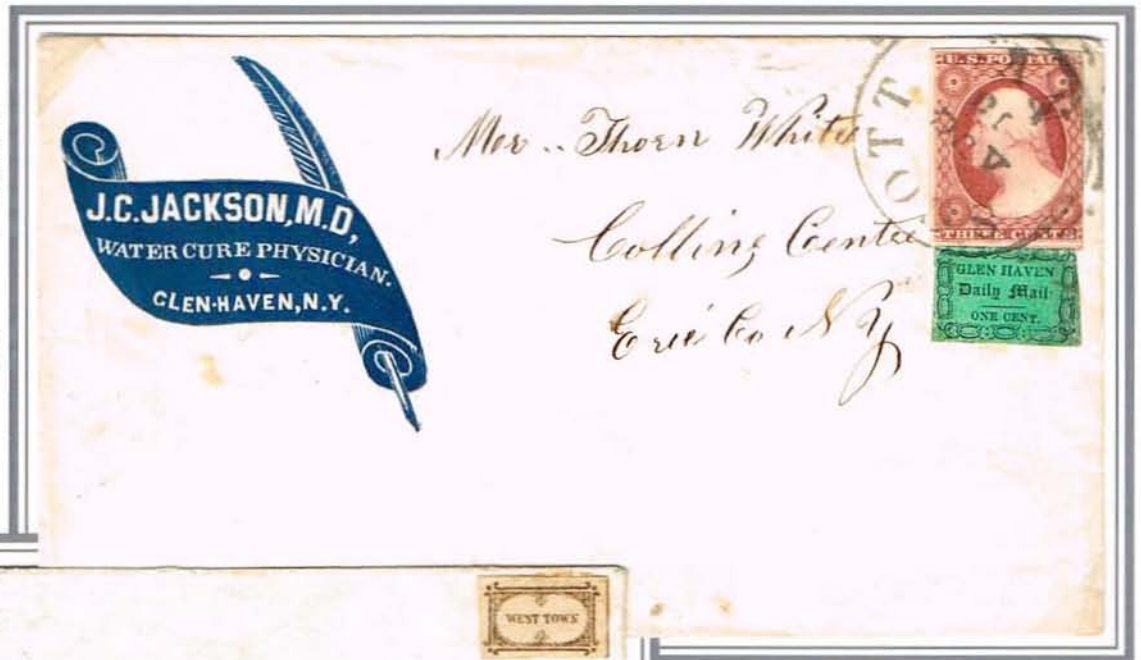 J.C.JACKSON,M.D,
WATER CURE PHYSICIAN.
GLEN-HAVEN,N.Y.
Thorn White
Collins Centre
Erie Co N Y
OTT
U.S.POSTAGE
THREE CENTS
GLEN HAVEN
Daily Mail
ONE CENT.
WEST TOWN